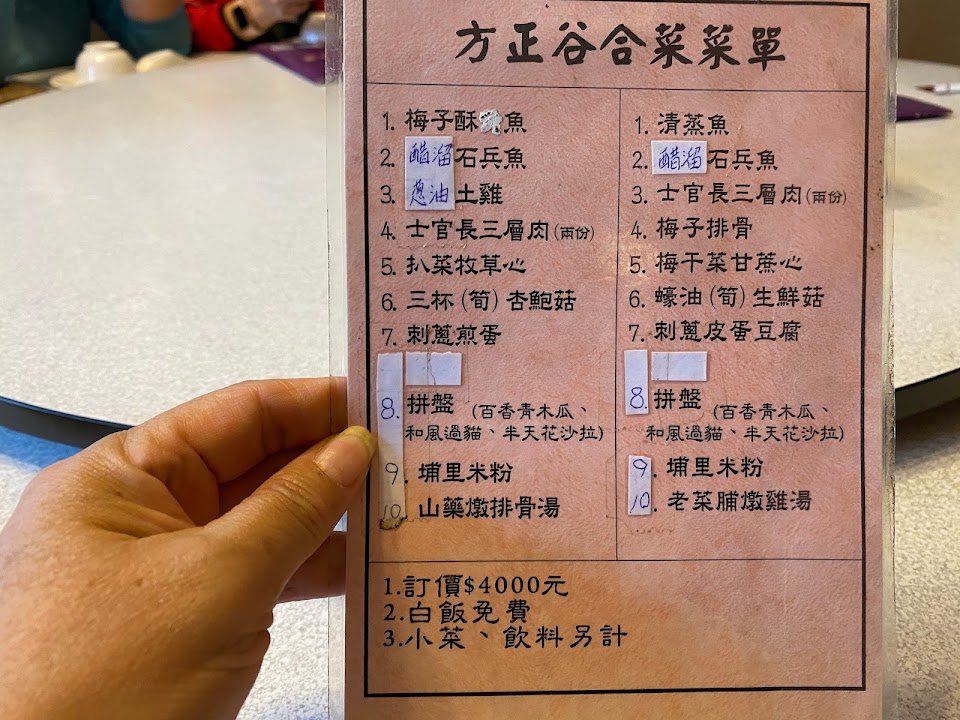 方正谷合菜菜單
1. 梅子酥魚
2. 醋溜石兵魚
3. 蔥油土雞
4. 士官長三層肉(兩份)
5. 扒菜牧草心
6. 三杯(筍)杏鮑菇
7. 刺蔥煎蛋
8. 拼盤 (百香青木瓜、
和風過貓、半天花沙拉)
9. 埔里米粉
10. 山藥燉排骨湯
1. 清蒸魚
2. 醋溜石兵魚
3. 士官長三層肉(兩份)
4. 梅子排骨
5. 梅干菜甘蔗心
6. 蠔油(筍)生鮮菇
7. 刺蔥皮蛋豆腐
8. 拼盤 (百香青木瓜、
和風過貓、半天花沙拉)
9. 埔里米粉
10. 老菜脯燉雞湯
1.訂價$4000元
2.白飯免費
3.小菜、飲料另計